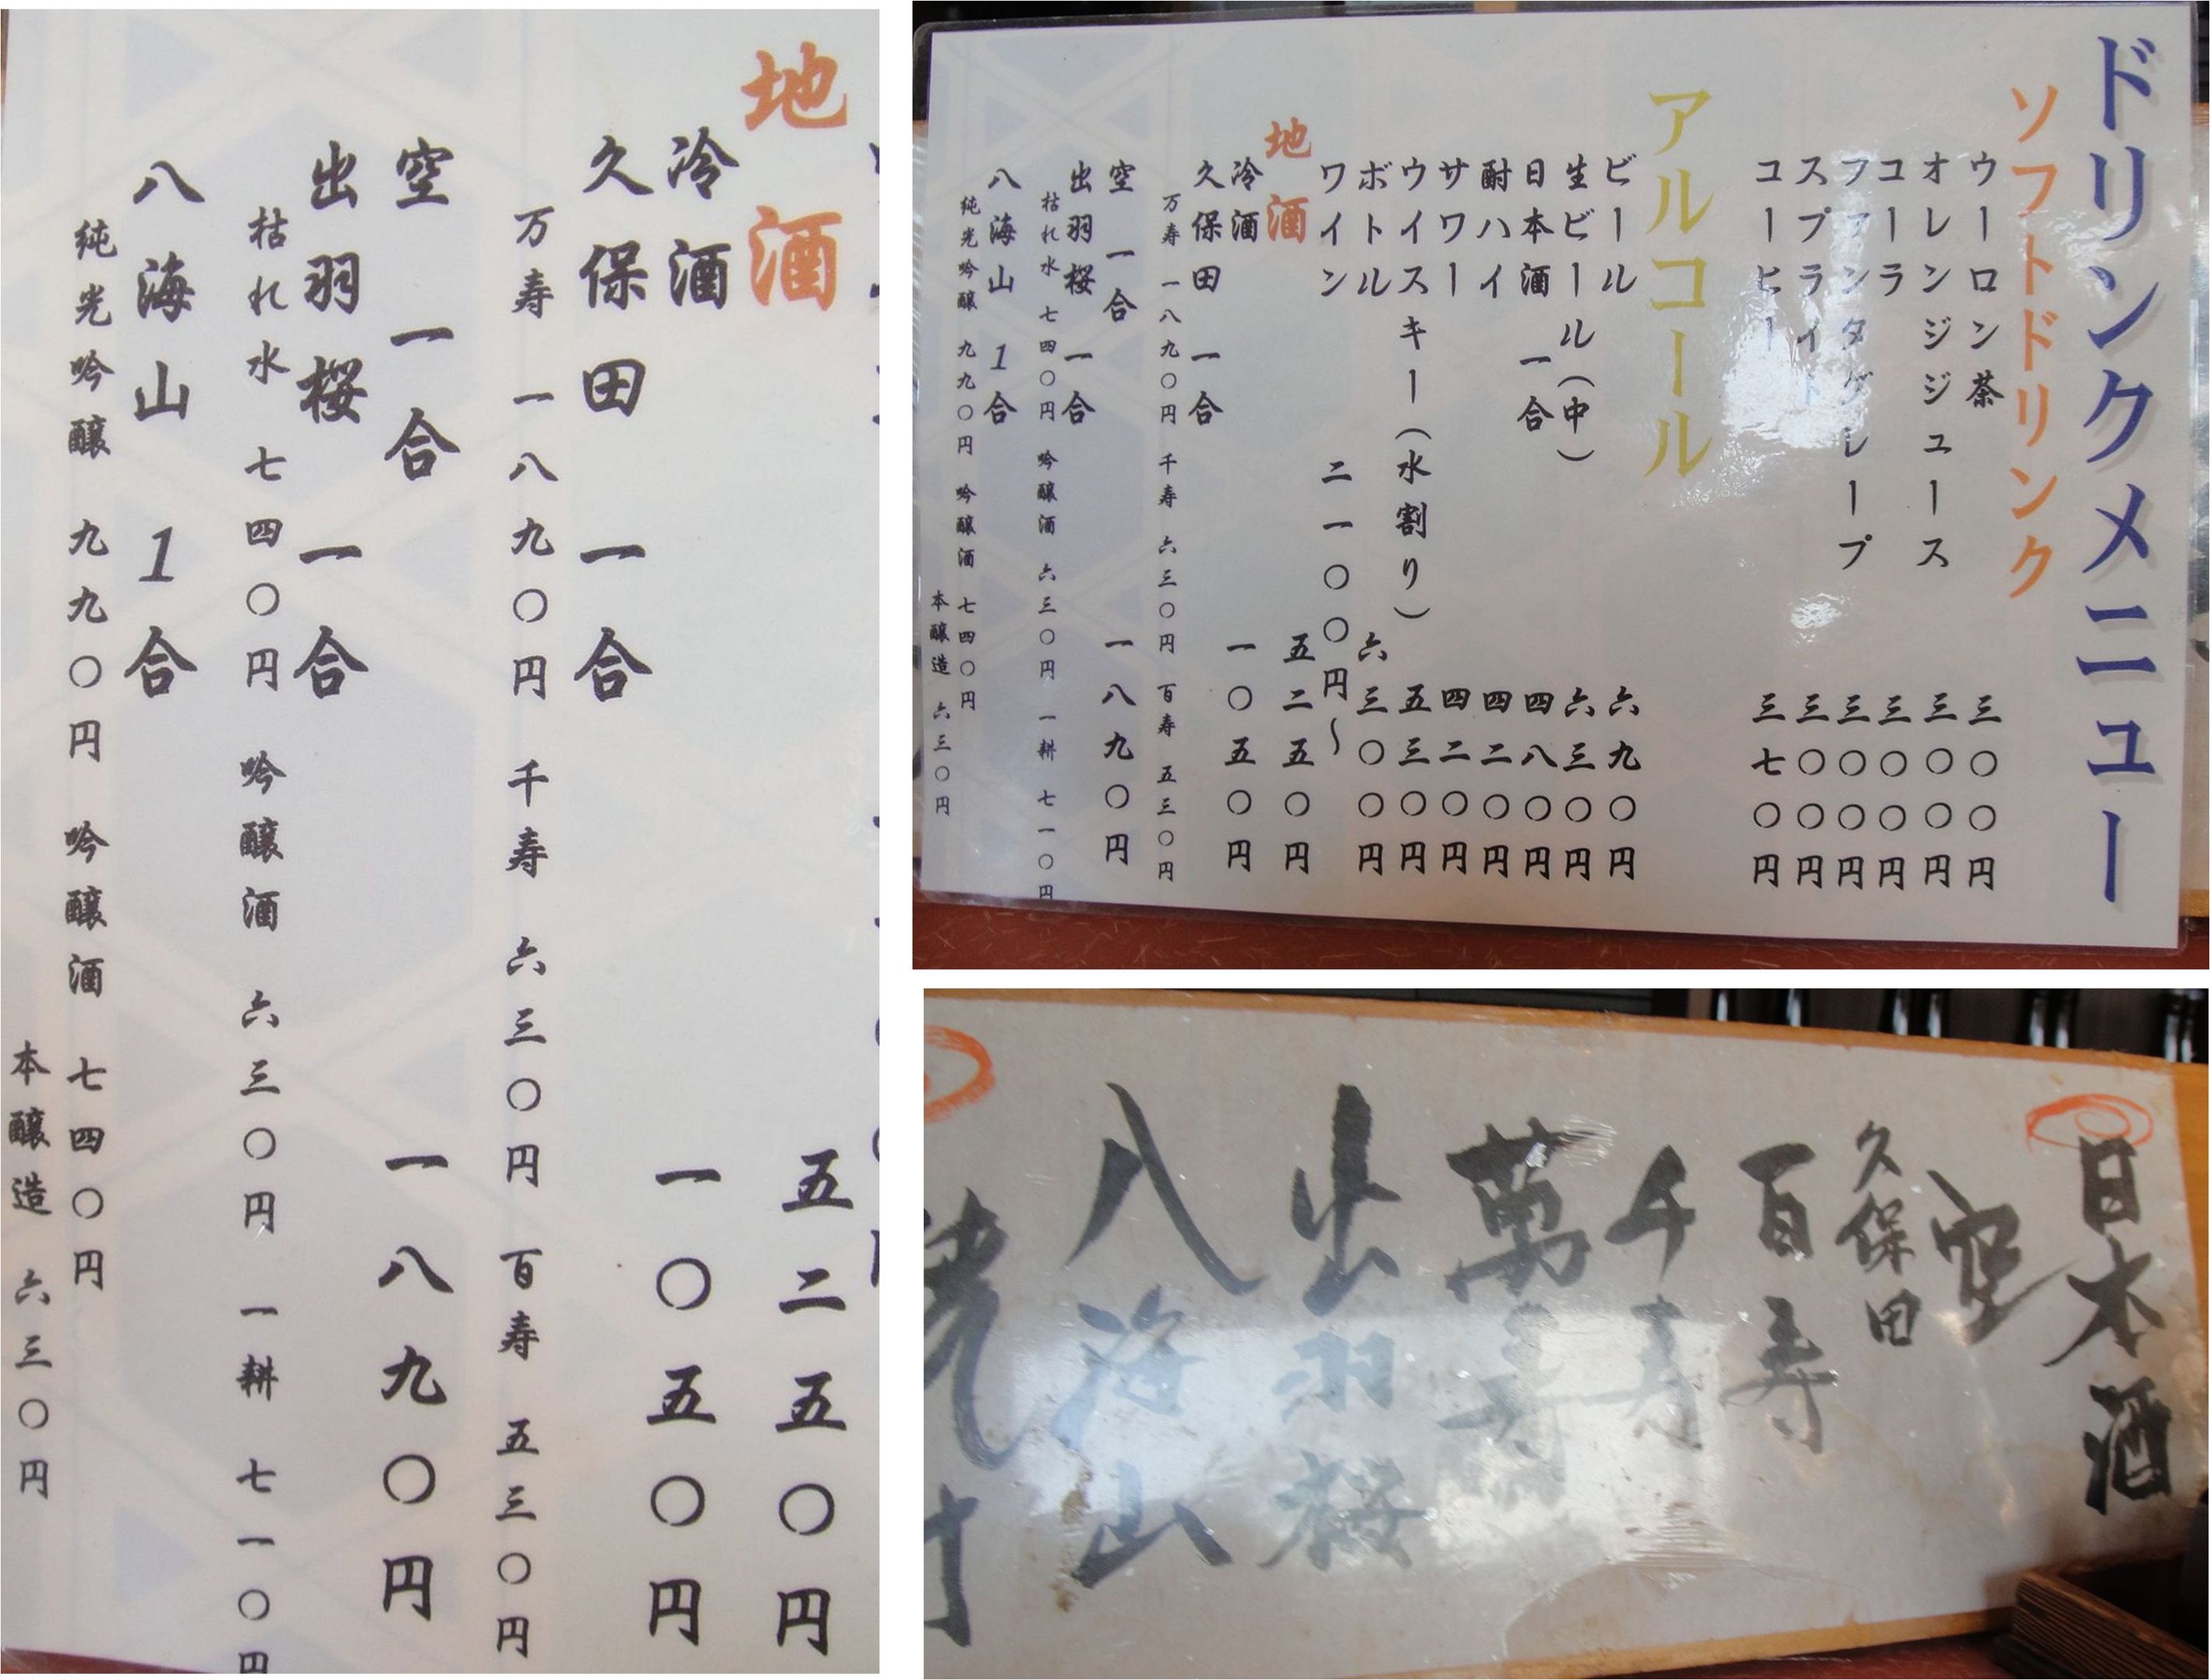 地酒
五二五〇円
冷酒 一〇五〇円
久保田 一合
万寿 一八九〇円 千寿 六三〇円 百寿 五三〇円
空 一合 一八九〇円
出羽桜 一合
枯れ水 七四〇円 吟醸酒 六三〇円 一耕 七一〇円
八海山 1合
純光吟醸 九九〇円 吟醸酒 七四〇円
本醸造 六三〇円
ドリンクメニュー
ソフトドリンク
ウーロン茶 三〇〇円
オレンジジュース 三〇〇円
コーラ 三〇〇円
ファンタグレープ 三〇〇円
スプライト 三〇〇円
コーヒー 三七〇円
アルコール
ビール 六九〇円
生ビール(中) 六三〇円
日本酒 一合 四八〇円
酎ハイ 四二〇円
サワー 四二〇円
ウイスキー(水割り) 五三〇円
ボトル 六三〇〇円
ワイン 二一〇〇円〜
五二五〇円
地酒
冷酒 一〇五〇円
久保田 一合
万寿 一八九〇円 千寿 六三〇円 百寿 五三〇円
空 一合 一八九〇円
出羽桜 一合
枯れ水 七四〇円 吟醸酒 六三〇円 一耕 七一〇円
八海山 1合
純光吟醸 九九〇円 吟醸酒 七四〇円
本醸造 六三〇円
日本酒
空
久保田
百寿
千寿
萬寿
出羽桜
八海山